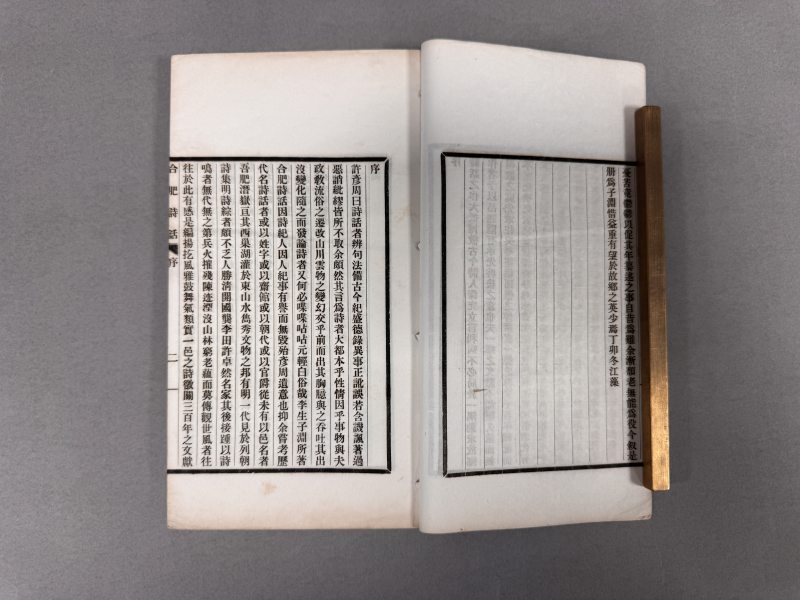 以促其年纂述之事自昔爲難余漸頹老無能爲役今叙是
册爲子淵惜益重有望於故鄉之英少焉丁卯冬江藻
序
許彥周曰詩話者辨句法備古今紀盛德錄異事正訛誤若含譏諷著過
惡誚紕繆皆所不取余頗然其言爲詩者大都本乎性情因乎事物與夫
政敎流俗之遷改山川雲物之變幻交乎前而出其胸臆與之吞吐其出
沒變化隨之而發論詩者又何必喋喋呫呫元輕白俗哉李生子淵所著
合肥詩話因詩紀人因人紀事有譽而無毀殆彥周遺意也抑余嘗考歷
代名詩話者或以姓字或以齋館或以朝代或以官爵從未有以邑名者
吾肥潛嶽亘其西巢湖灌於東山水雋秀文物之邦有明一代見於列朝
詩集明詩綜者頗不乏人勝淸開國龔李田許卓然名家其後接踵以詩
鳴者無代無之第兵火摧殘陳迹湮沒山林窮老蘊而莫傳觀世風者往
往於此有感是編揚扢風雅鼓舞氣類實一邑之詩徵關三百年之文獻
合肥詩話 序 二